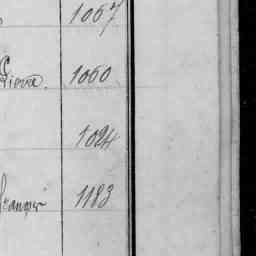 1067
Pierre. 1060
1024
1183